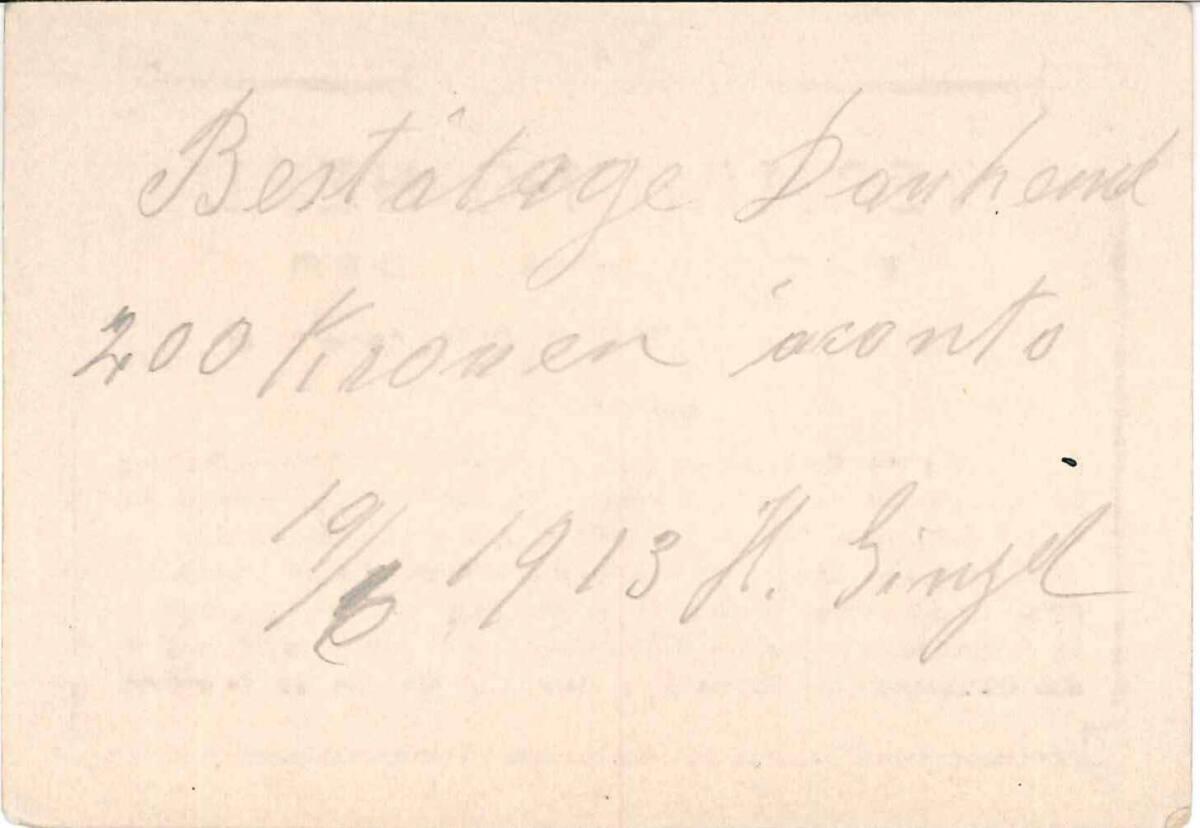 Bestätage Dankend
200 Kronen áconto
19/6 1913 H.